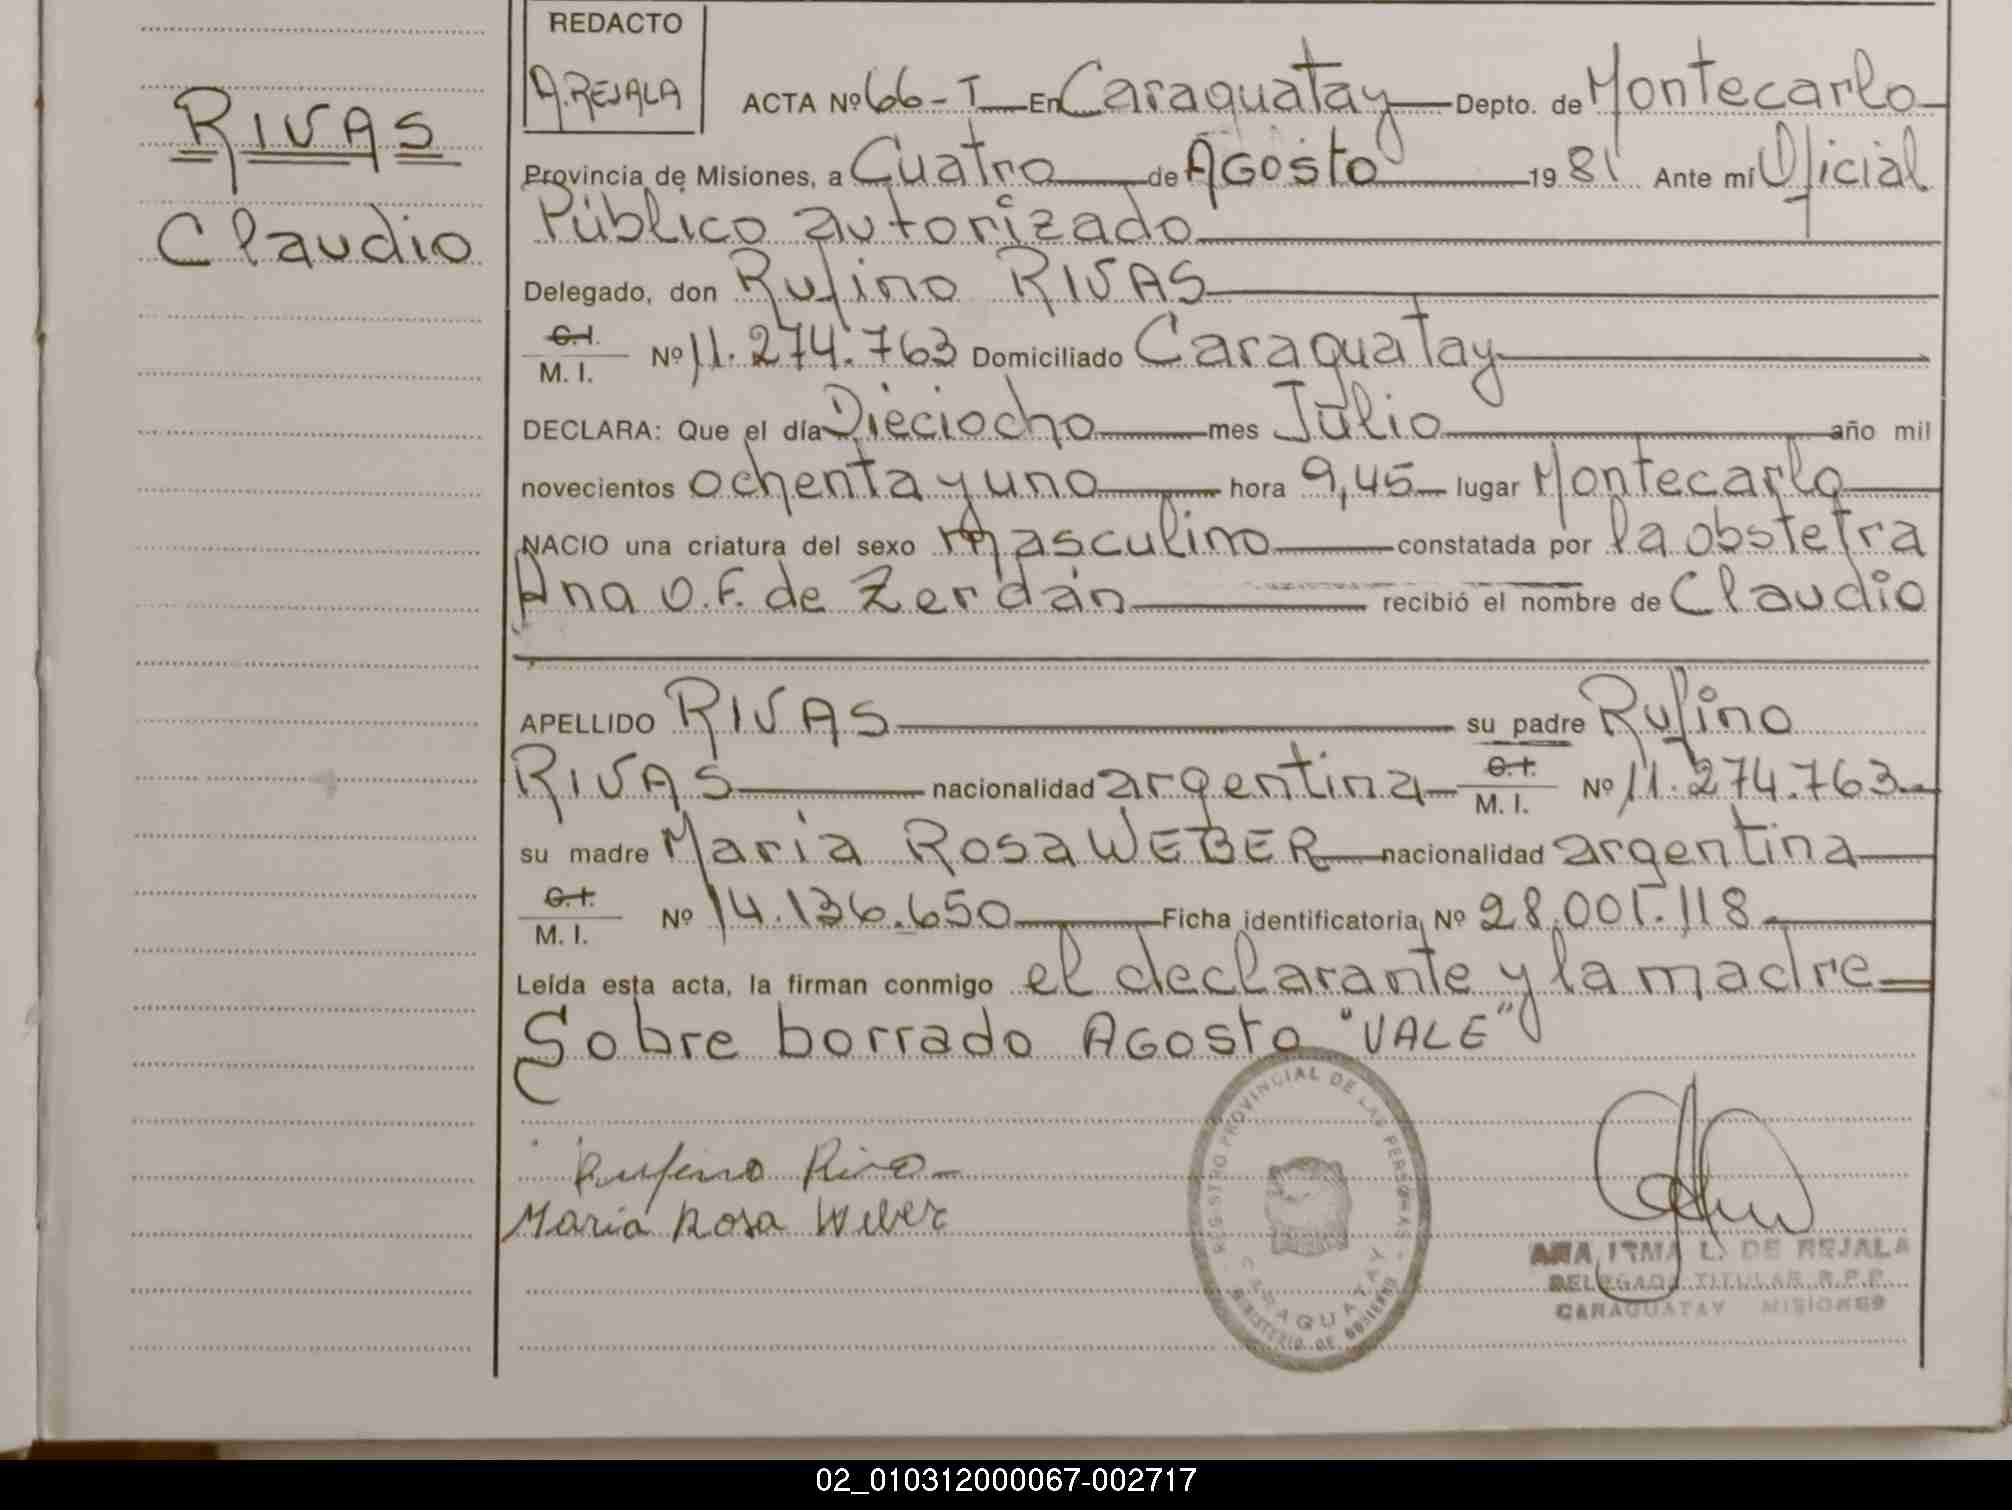 RIVAS
Claudio
REDACTO
A. REJALA
ACTA Nº 66-I En Caraguatay Depto. de Montecarlo
Provincia de Misiones, a Cuatro de Agosto 1981 Ante mí Oficial
Público autorizado
Delegado, don Rufino RIVAS
C.I.
M. I. Nº 11.274.763 Domiciliado Caraguatay
DECLARA: Que el día Dieciocho mes Julio año mil
novecientos ochenta y uno hora 9,45 lugar Montecarlo
NACIO una criatura del sexo masculino constatada por la obstetra
Ana O.F. de Zerdán recibió el nombre de Claudio
APELLIDO RIVAS su padre Rufino
RIVAS nacionalidad argentina C.I. M. I. Nº 11.274.763
su madre Maria Rosa WEBER nacionalidad argentina
C.I.
M. I. Nº 14.136.650 Ficha identificatoria Nº 28.001.118
Leída esta acta, la firman conmigo el declarante y la madre
Sobre borrado Agosto "VALE"
Rufino Riva
Maria Rosa Weber
REGISTRO PROVINCIAL DE LAS PERSONAS
CARAGUATAY
MINISTERIO DE GOBIERNO
ANA IRMA L. DE REJALA
DELEGADA TITULAR R.P.P.
CARAGUATAY MISIONES
02_010312000067-002717